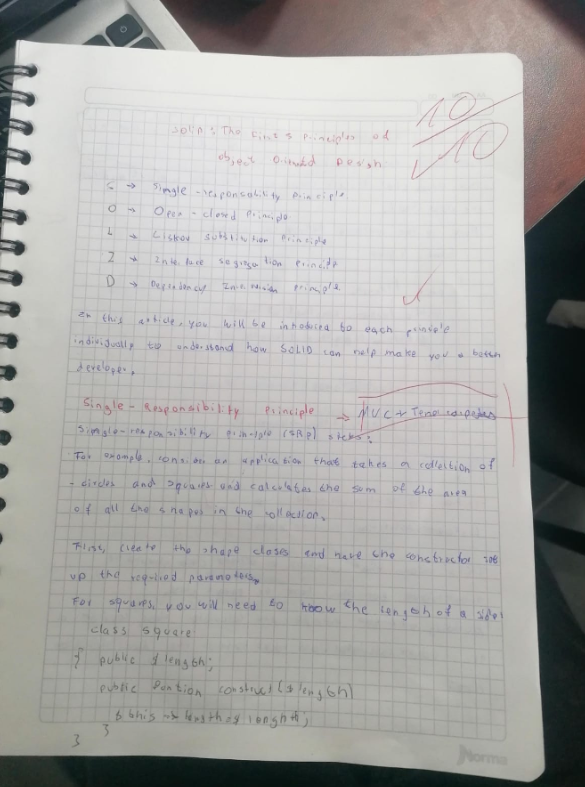 10/10
SOLID: The First 5 Principles of
Object Oriented Design
S → Single-responsability principle
O → Open-closed Principle
L → Liskov substitution principle
I → Interface segregation principle
D → Dependency Inversion principle
In this article, you will be introduced to each principle
individually to understand how SOLID can help make you a better
developer.
Single-Responsibility Principle → MVC + Tres capas
Single-responsibility principle (SRP) states:
For example, consider an application that takes a collection of
- circles and squares and calculates the sum of the area
of all the shapes in the collection.
First, create the shape classes and have the constructor set
up the required parameters.
For squares, you will need to know the length of a side:
class square
{ public $length;
public function construct($length)
$this → length = $length;
}
}
Norma